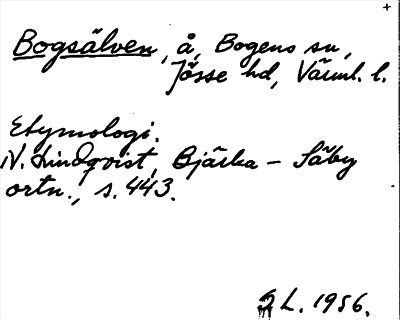 +
Bogsälven, å, Bogens sn,
Jösse hd, Värml. l.
Etymologi.
N. Lindqvist, Bjärka - Säby
ortn., s. 443.
S. L. 1956.